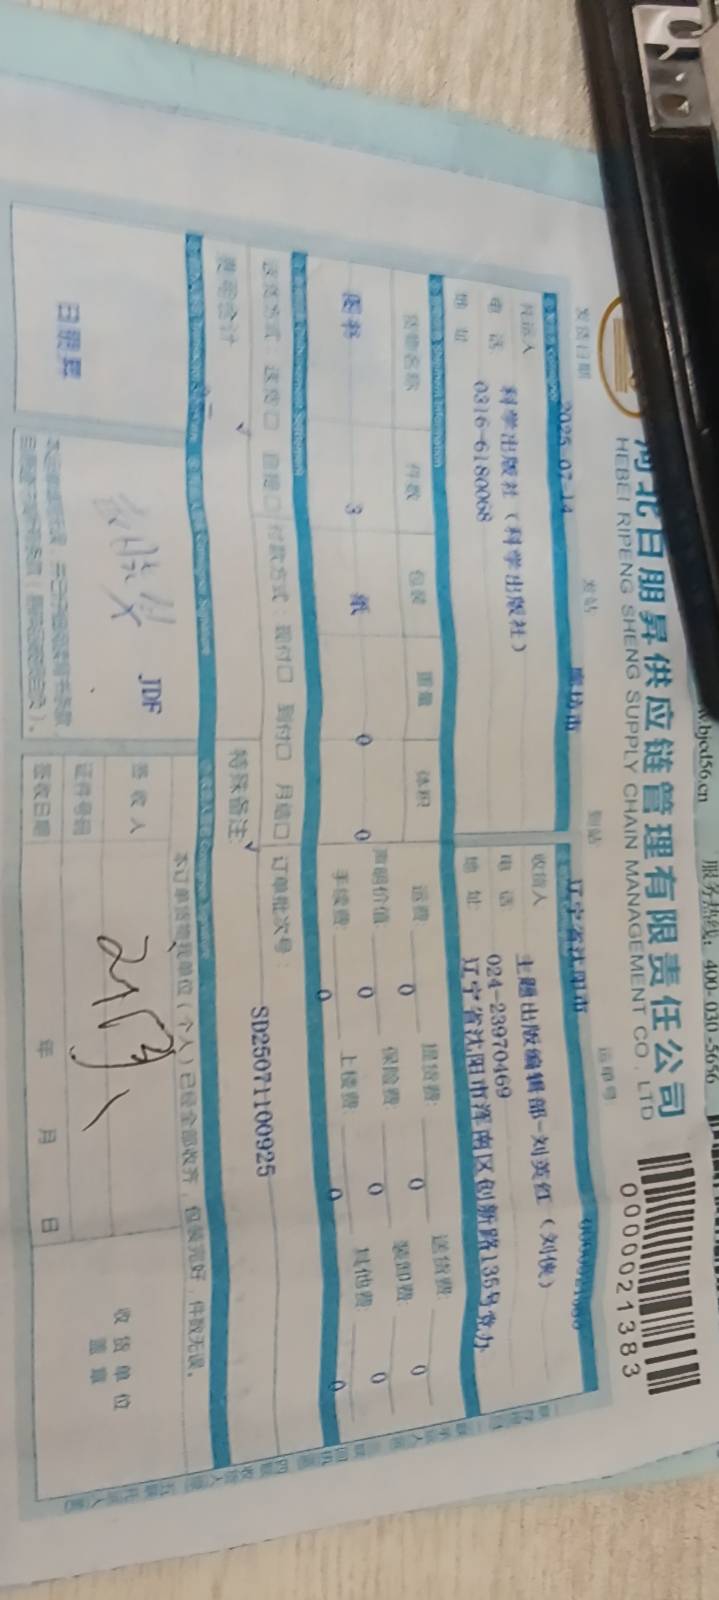 服务热线：400-030-5656
河北日朋昇供应链管理有限责任公司
HEBEI RIPENG SHENG SUPPLY CHAIN MANAGEMENT CO., LTD
0000021383
发货日期 2025-07-14 发站 廊坊市 到站 辽宁省沈阳市 运单号
托运人 科学出版社（科学出版社）
电话 0316-6180068
地址
收货人 主题出版编辑部-刘英红（刘侠）
电话 024-23970469
地址 辽宁省沈阳市浑南区创新路135号党办
货物名称 件数 包装 重量 体积
图书 3 纸 0 0
运费： 0 提货费： 0 送货费： 0
声明价值： 0 保险费： 0 装卸费： 0
手续费： 0 上楼费： 0 其他费： 0
送货方式：送货□ 自提□ 付款方式：现付□ 到付□ 月结□ 订单批次号：SD25071100925
费用合计
特殊备注
日朋昇
JDF
本订单货物我单位（个人）已经全部收齐，包装完好，件数无误。
签收人
证件号码
签收日期 年 月 日
收货单位
盖章